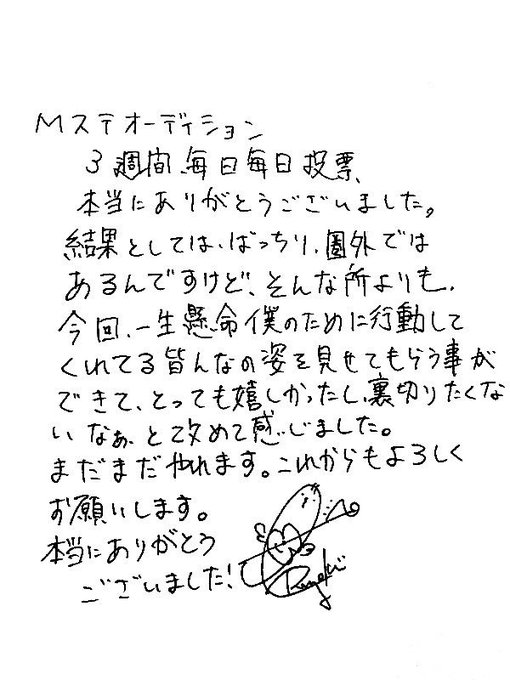 Mステオーディション
3週間、毎日毎日投票、
本当にありがとうございました。
結果としては、ばっちり、圏外では
あるんですけど、そんな所よりも、
今回、一生懸命僕のために行動して
くれてる皆んなの姿を見せてもらう事が
できて、とっても嬉しかったし、裏切りたくな
いなぁ、と改めて感じました。
まだまだやれます。これからもよろしく
お願いします。
本当にありがとう
ございました!